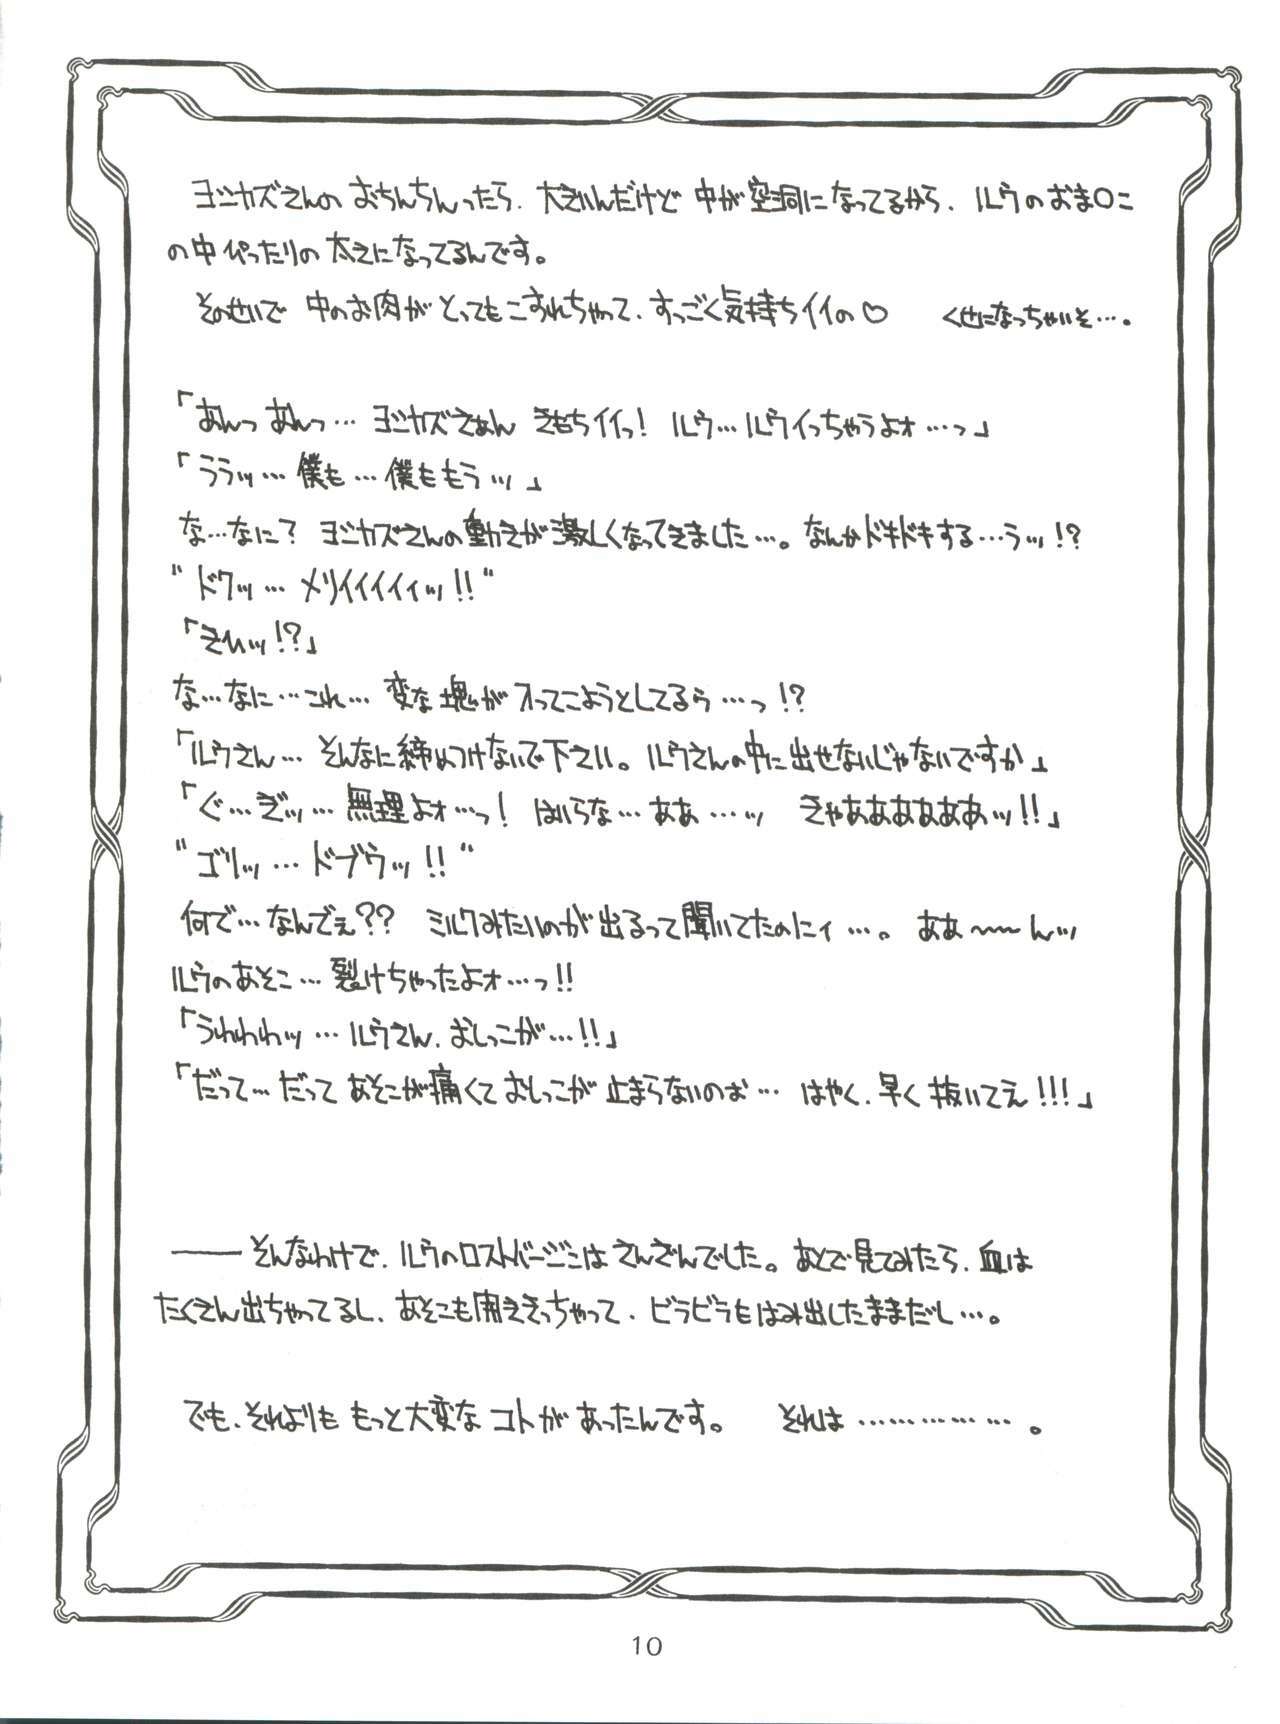 ヨシカズさんの おちんちんったら、大きいんだけど 中が空洞になってるから、ルウのおま〇こ
の中 ぴったりの 太さになってるんです。
そのせいで 中のお肉が とっても こすれちゃって、すっごく気持ちイイの♡ くせになっちゃいそ…。
「あんっ あんっ… ヨシカズさぁん きもちイイっ! ルウ…ルウイっちゃうよォ…っ」
「ううッ… 僕も…僕ももうッ」
な…なに? ヨシカズさんの動きが激しくなってきました…。なんかドキドキする…うッ!?
"ドクッ… メリイイイイィッ!!"
「きひッ!?」
な…なに…これ… 変な塊が 入ってこようとしてるぅ…っ!?
「ルウさん… そんなに締めつけないで下さい。ルウさんの中に出せないじゃないですか」
「ぐ…ぎッ… 無理よォ…っ! はいらな…ああ…ッ きゃああああああッ!!」
"ゴリッ… ドブウッ!!"
何で…なんでぇ?? ミルクみたいのが出るって聞いてたのにィ…。 ああ〜〜んッ
ルウのあそこ… 裂けちゃったよォ…っ!!
「うわわわッ… ルウさん、おしっこが…!!」
「だって…だって あそこが痛くて おしっこが 止まらないのぉ… はやく、早く抜いてえ!!!」
―――そんなわけで、ルウのロストバージンは さんざんでした。あとで見てみたら、血は
たくさん出ちゃってるし、あそこも開ききっちゃって、ビラビラもはみ出したままだし…。
でも、それよりも もっと大変な コトが あったんです。 それは ……………。
10